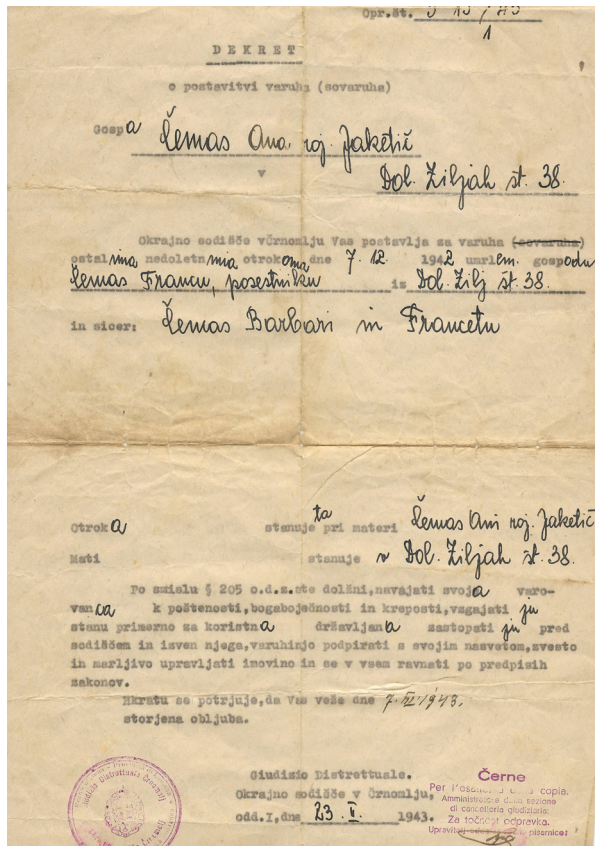 Opr.št.
1
DEKRET
o postavitvi varuha (sovaruha)
Gospa Čemas Ana, roj. Jaketič
v Dol. Žiljah št. 38.
Okrajno sodišče vČrnomlju Vas postavlja za varuha (sovaruha)
dne 7. 12. 1942 umrlem. gospodu
Čemas Francu, posestniku iz Dol. Žilj št. 38.
in sicer: Čemas Barbari in Francetu
Otroka stanujeta pri materi Čemas Ani roj. Jaketič
Mati stanuje v Dol. Žiljah št. 38.
Po smislu § 205 o.d.z.ste dolžni,navajati svoja varo-
vanca k poštenosti,bogaboječnosti in kreposti,vzgajati ju
stanu primerno za koristna državljana zastopati ju pred
sodiščem in izven njega,varuhinjo podpirati s svojim nasvetom,zvesto
in marljivo upravljati imovino in se v vsem ravnati po predpisih
zakonov.
Hkratu se potrjuje,da Vas veže dne
storjena obljuba.
Giudizio Distrettuale.
Okrajno sodišče v Črnomlju,
odd.I,dne 23. 1943.
Černe
Per l'esattezza della copia.
Amministratore della sezione
di cancelleria giudiziaria:
Za točnost odpravka.
Upravitelj pisarnice: